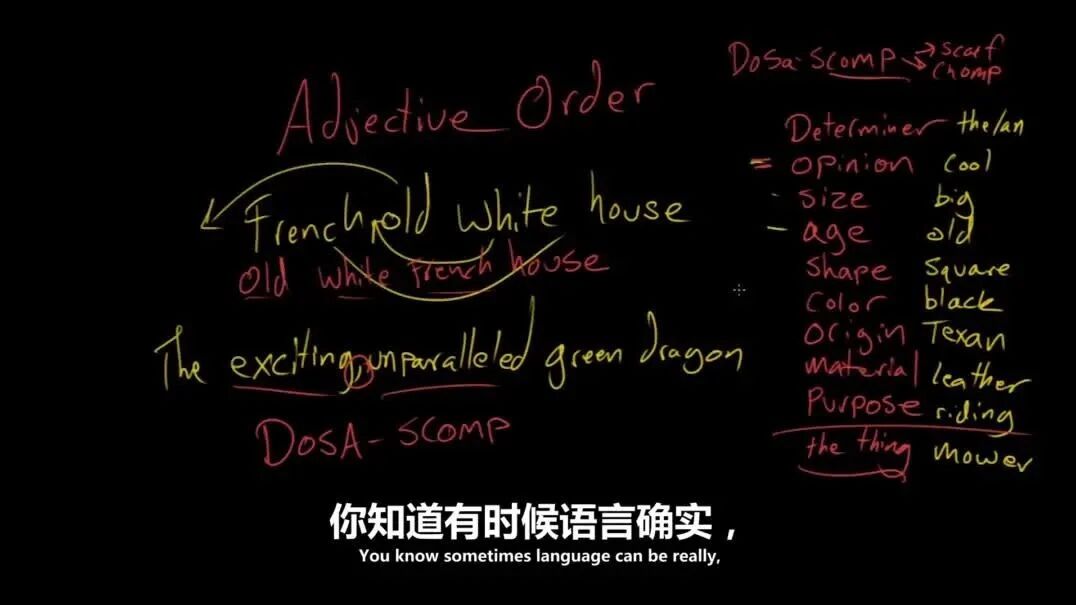 Adjective Order
French, old white house
old white French house
The exciting, unparalleled green dragon
DOSA-SCOMP
DOSA-SCOMP → scarf
chomp
Determiner the/an
= opinion cool
- size big
- age old
shape square
color black
origin Texan
material leather
Purpose riding
the thing mower
你知道有时候语言确实，
You know sometimes language can be really,